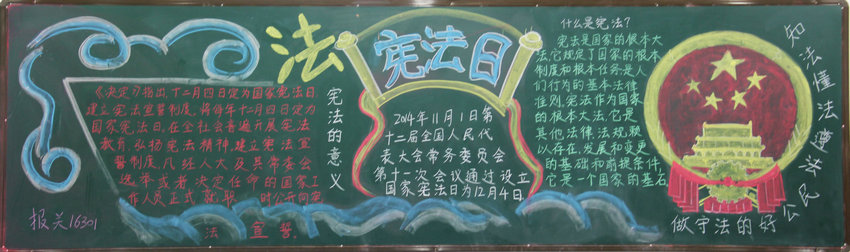 《决定》指出，十二月四日定为国家宪法日
建立宪法宣誓制度，将每年十二月四日定为
国家宪法日，在全社会普遍开展宪法
教育，弘扬宪法精神，建立宪法宣
誓制度，凡经人大及其常委会
选举或者决定任命的国家工
作人员正式就职时公开向宪
法宣誓。
报关16301
法
宪法的意义
宪法日
2014年11月1日第
十二届全国人民代
表大会常务委员会
第十一次会议通过设立
国家宪法日为12月4日.
什么是宪法？
宪法是国家的根本大
法,它规定了国家的根本
制度和根本任务,是人
们行为的基本法律
准则.宪法作为国家
的根本大法,它是
其他法律,法规赖
以存在,发展和变更
的基础和前提条件,
它是一个国家的基石
知法懂法遵法
做守法的好公民